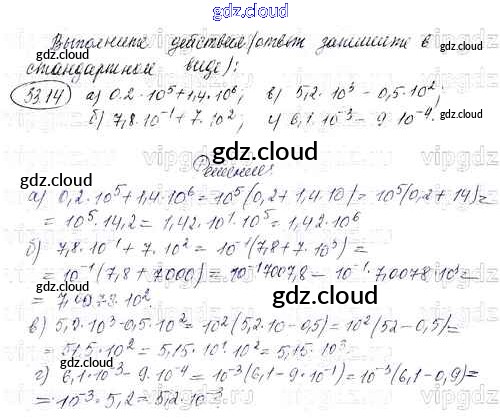 gdz.cloud
Выполните действия (ответ запишите в
стандартном виде):
33.14 а) 0.2 · 10⁵ + 1,4 · 10⁶; в) 5,2 · 10³ - 0,5 · 10²;
б) 7,8 · 10⁻¹ + 7 · 10²; г) 6,1 · 10⁻³ - 9 · 10⁻⁴.
gdz.cloud
Решение:
а) 0,2 · 10⁵ + 1,4 · 10⁶ = 10⁵(0,2 + 1,4 · 10) = 10⁵(0,2 + 14) =
= 10⁵ · 14,2 = 1,42 · 10¹ · 10⁵ = 1,42 · 10⁶
gdz.cloud
б) 7,8 · 10⁻¹ + 7 · 10² = 10⁻¹(7,8 + 7 · 10³) =
= 10⁻¹(7,8 + 7000) = 10⁻¹ 7007,8 = 10⁻¹ · 7,0078 · 10³ =
= 7,0078 · 10².
gdz.cloud
в) 5,2 · 10³ - 0,5 · 10² = 10²(5,2 · 10 - 0,5) = 10²(52 - 0,5) =
= 51,5 · 10² = 5,15 · 10¹ · 10² = 5,15 · 10³.
г) 6,1 · 10⁻³ - 9 · 10⁻⁴ = 10⁻³(6,1 - 9 · 10⁻¹) = 10⁻³(6,1 - 0,9) =
= 10⁻³ · 5,2 = 5,2 · 10⁻³
gdz.cloud